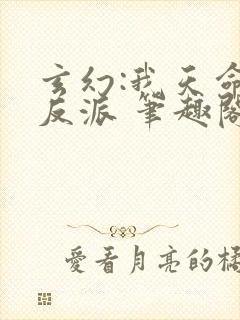 玄幻:我天命
反派 筆趣閣
愛看月亮的橘